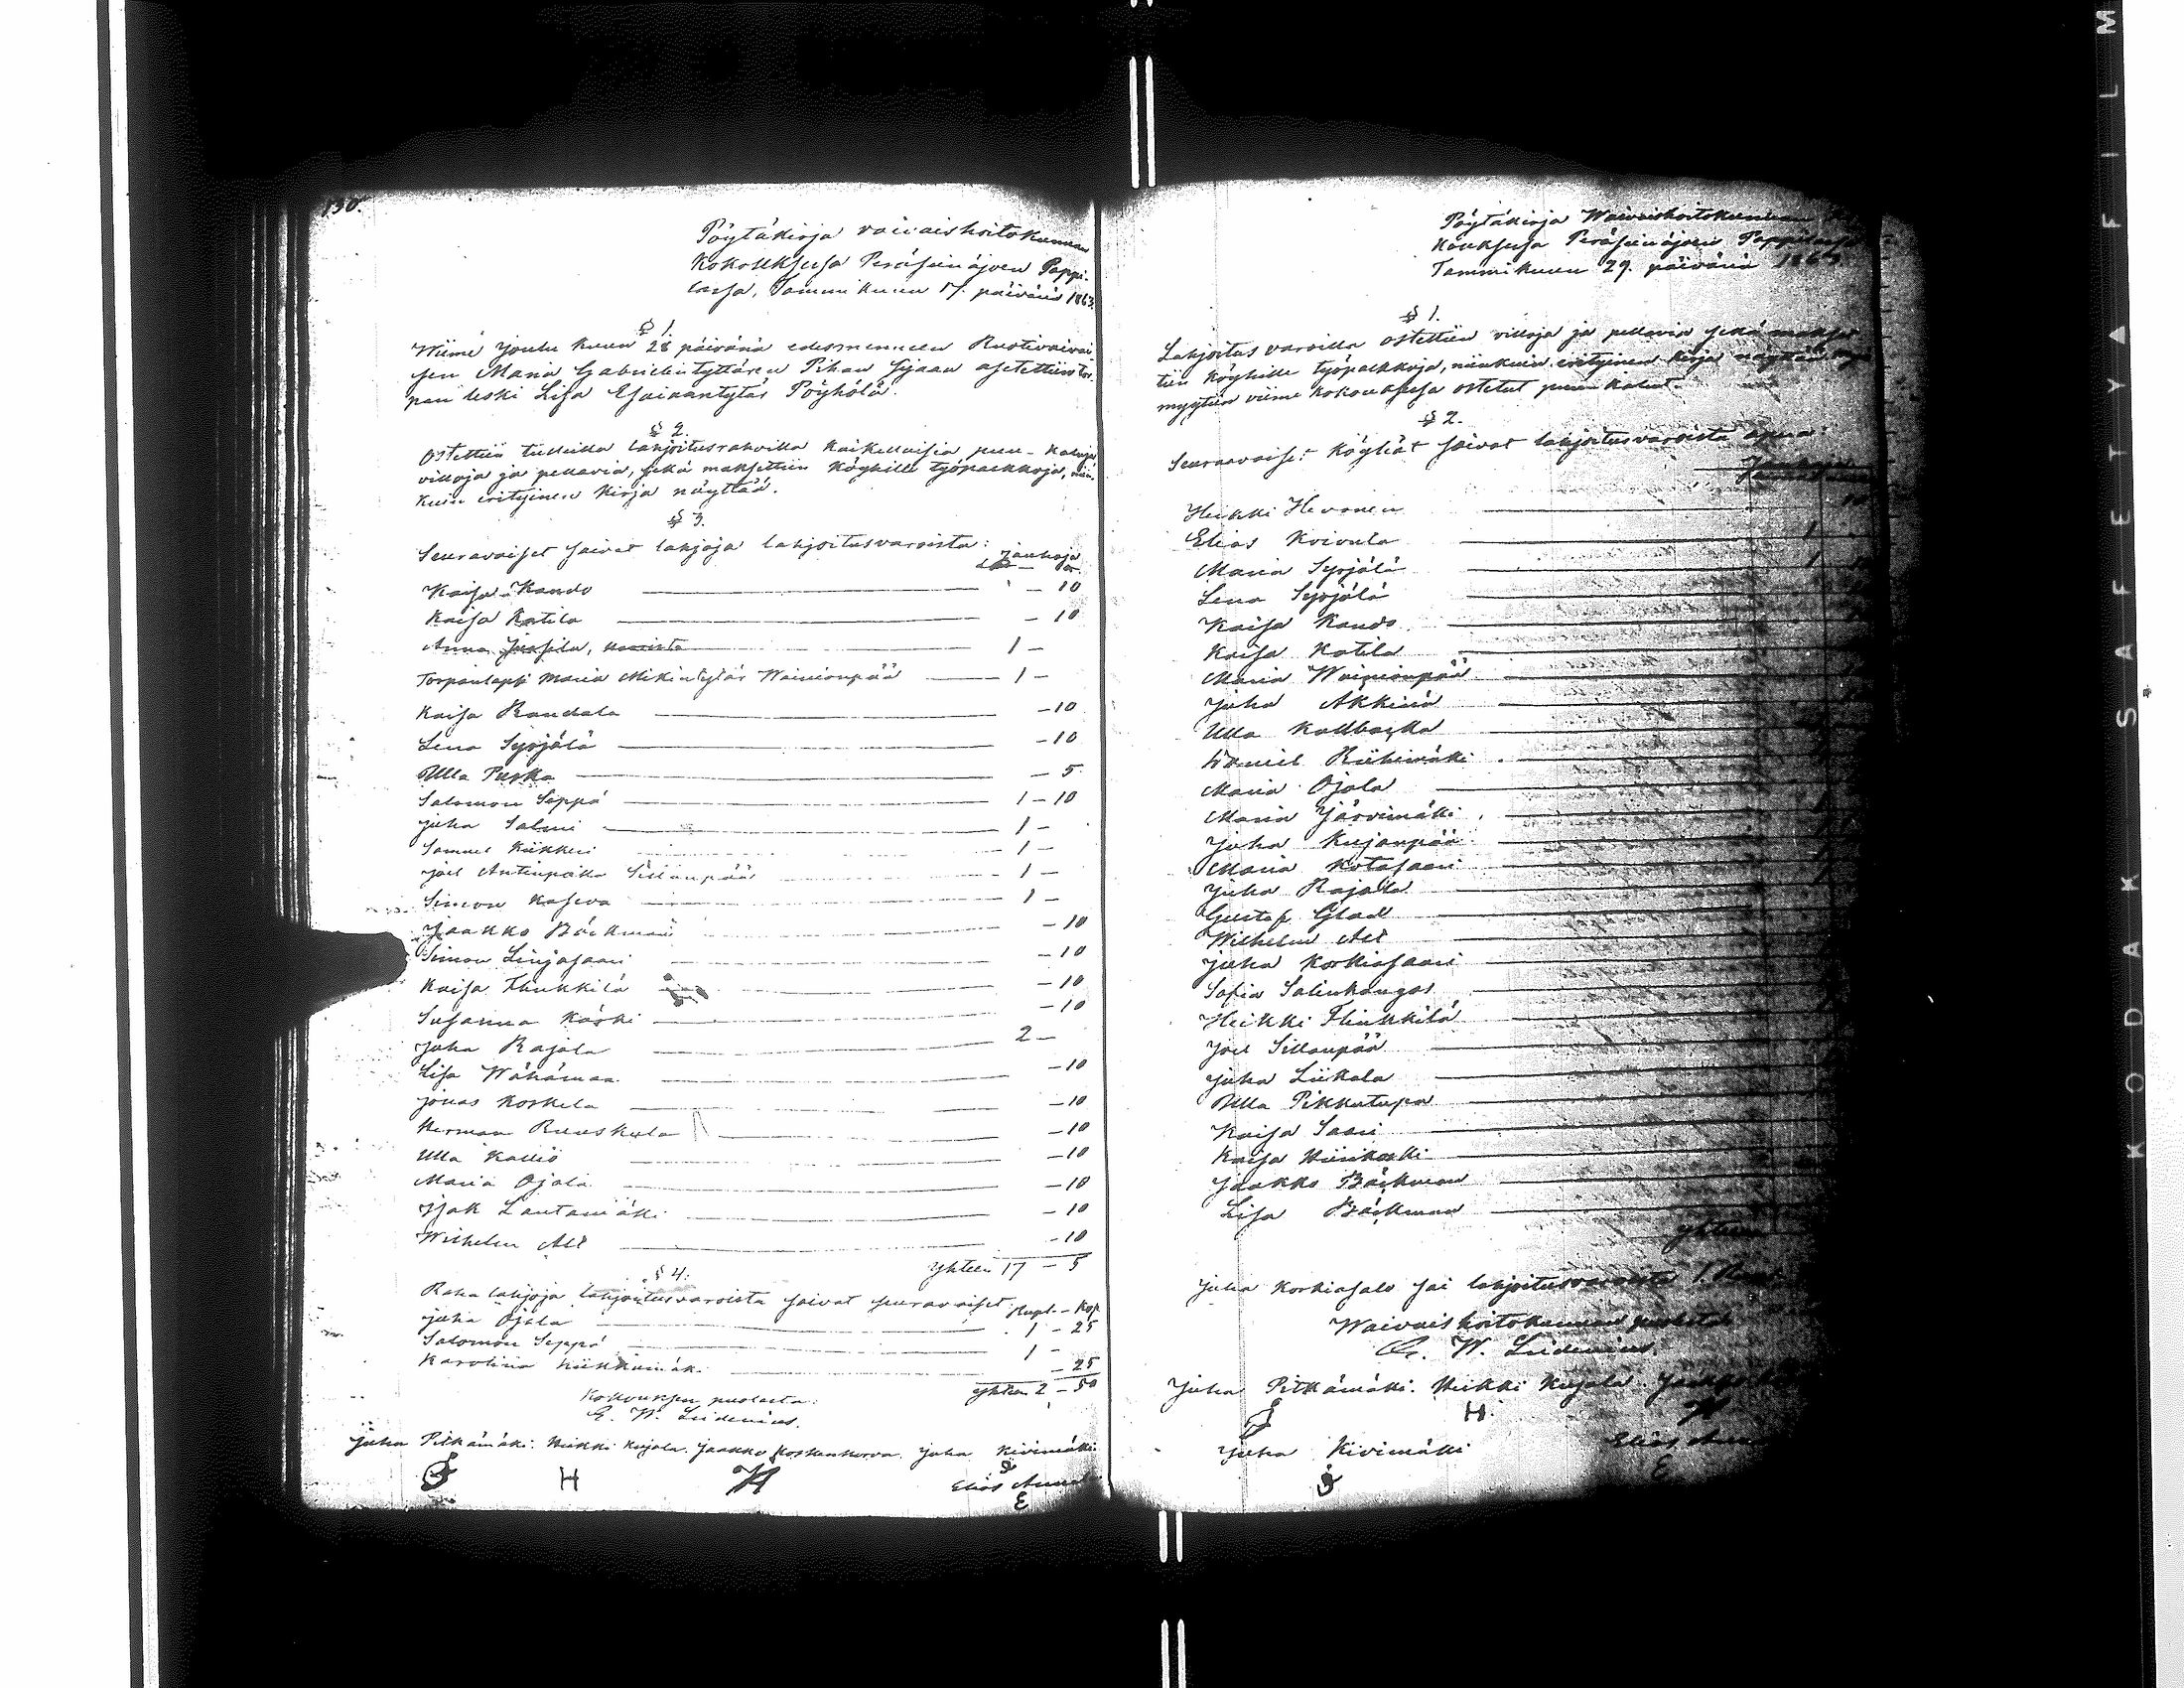 130.
Pöytäkirja vaivaishoitokunnan
Kokouksesa Peräseinäjoen Pappi-
lassa, Tammikuun 17. päivänä 1863.
§ 1.
Wiime Joulu kuun 28 päivänä edesmenneen Ruotivaivai-
sen Maria Gabrielintyttären Pihan sijaan asetettiin tor-
pan leski Lisa Esaiaantytär Pöyhölä.
§ 2.
Ostettiin tulleilla lahjoitusrahoilla kaikellaisia puu-kaluja
villoja ja pellavia, sekä maksettiin köyhille työpalkkoja, niin-
kuin erityinen kirja näyttää.
§ 3.
Seuravaiset saivat lahjoja lahjoitusvaroista: jauhoja
Kaisa Kando — 10
Kaisa Katila — 10
Anna Jussila, 1 —
Torpanlapsi Maria Mikintytär Wainionpää 1 —
Kaisa Randala — 10
Lena Syrjälä — 10
Ulla Puska — 5
Salomon Seppä 1 — 10
Juha Salmi 1 —
Samuel Kiikkeri 1 —
Joel Antinpoika Sillanpää 1 —
Simon Kaseva 1 —
Jaakko Bäckman — 10
Simon Linjasaari — 10
Kaisa Flinkkilä — 10
Susanna Käski — 10
Juha Rajala 2 —
Lisa Wähämaa — 10
Jonas Koskela — 10
Herman Ruuskula — 10
Ulla Kallio — 10
Maria Ojala — 10
Isak Lautamäki — 10
Wilhelm Ali — 10
yhteen 17 — 5
§ 4.
Raha lahjoja lahjoitusvaroista saivat seuravaiset Rupl. — Kop.
Juha Ojala 1 — 25
Salomon Seppä 1 —
Karolina Kiikkumäki — 25
yhteen 2 — 50
Kokouksen puolesta:
G. W. Lindenius.
Juha Pitkämäki. Heikki Kujala. Jaakko Koskenkorva. Juha Kivimäki
H
Elias
E
Pöytäkirja Waivaishoitokunnan
kouksesa Peräseinäjoen Pappilassa
Tammikuun 29. päivänä 1863
§ 1.
Lahjoitus varoilla ostettiin villoja ja pellavia sekä makset-
tiin köyhille työpalkkoja, niinkuin erityinen kirja näyttää
myytiin viime kokouksesa ostetut puu kalut.
§ 2.
Seuraavaiset köyhät saivat lahjoitusvaroista apua:
Heikki Hevonen
Elias Koivula 1
Maria Syrjälä 1
Lena Syrjälä
Kaisa Kando
Kaisa Katila
Maria Wainionpää
Juha Akkina
Ulla Kallbacka
Daniel Riihimäki
Maria Ojala
Maria Järvimäki
Juha Kujanpää
Maria Kotasaari
Juha Rajala
Gustaf Glad
Wilhelm Ali
Juha Korkiasaari
Sofia Salinkangas
Heikki Flinkkilä
Joel Sillanpää
Juha Liikala
Ulla Pikkutupa
Kaisa Saari
Kaisa Hiirikoski
Jaakko Bäckman
Lisa Bäckman
yhteen
Juha Korkiasalo sai lahjoitusvaroista 1.
Waivaishoitokunnan puolesta
G. W. Lindenius.
Juha Pitkämäki. Heikki Kujala. Jaakko
H.
Juha Kivimäki
Elias
E
KODAK SAFETY ▲ FILM